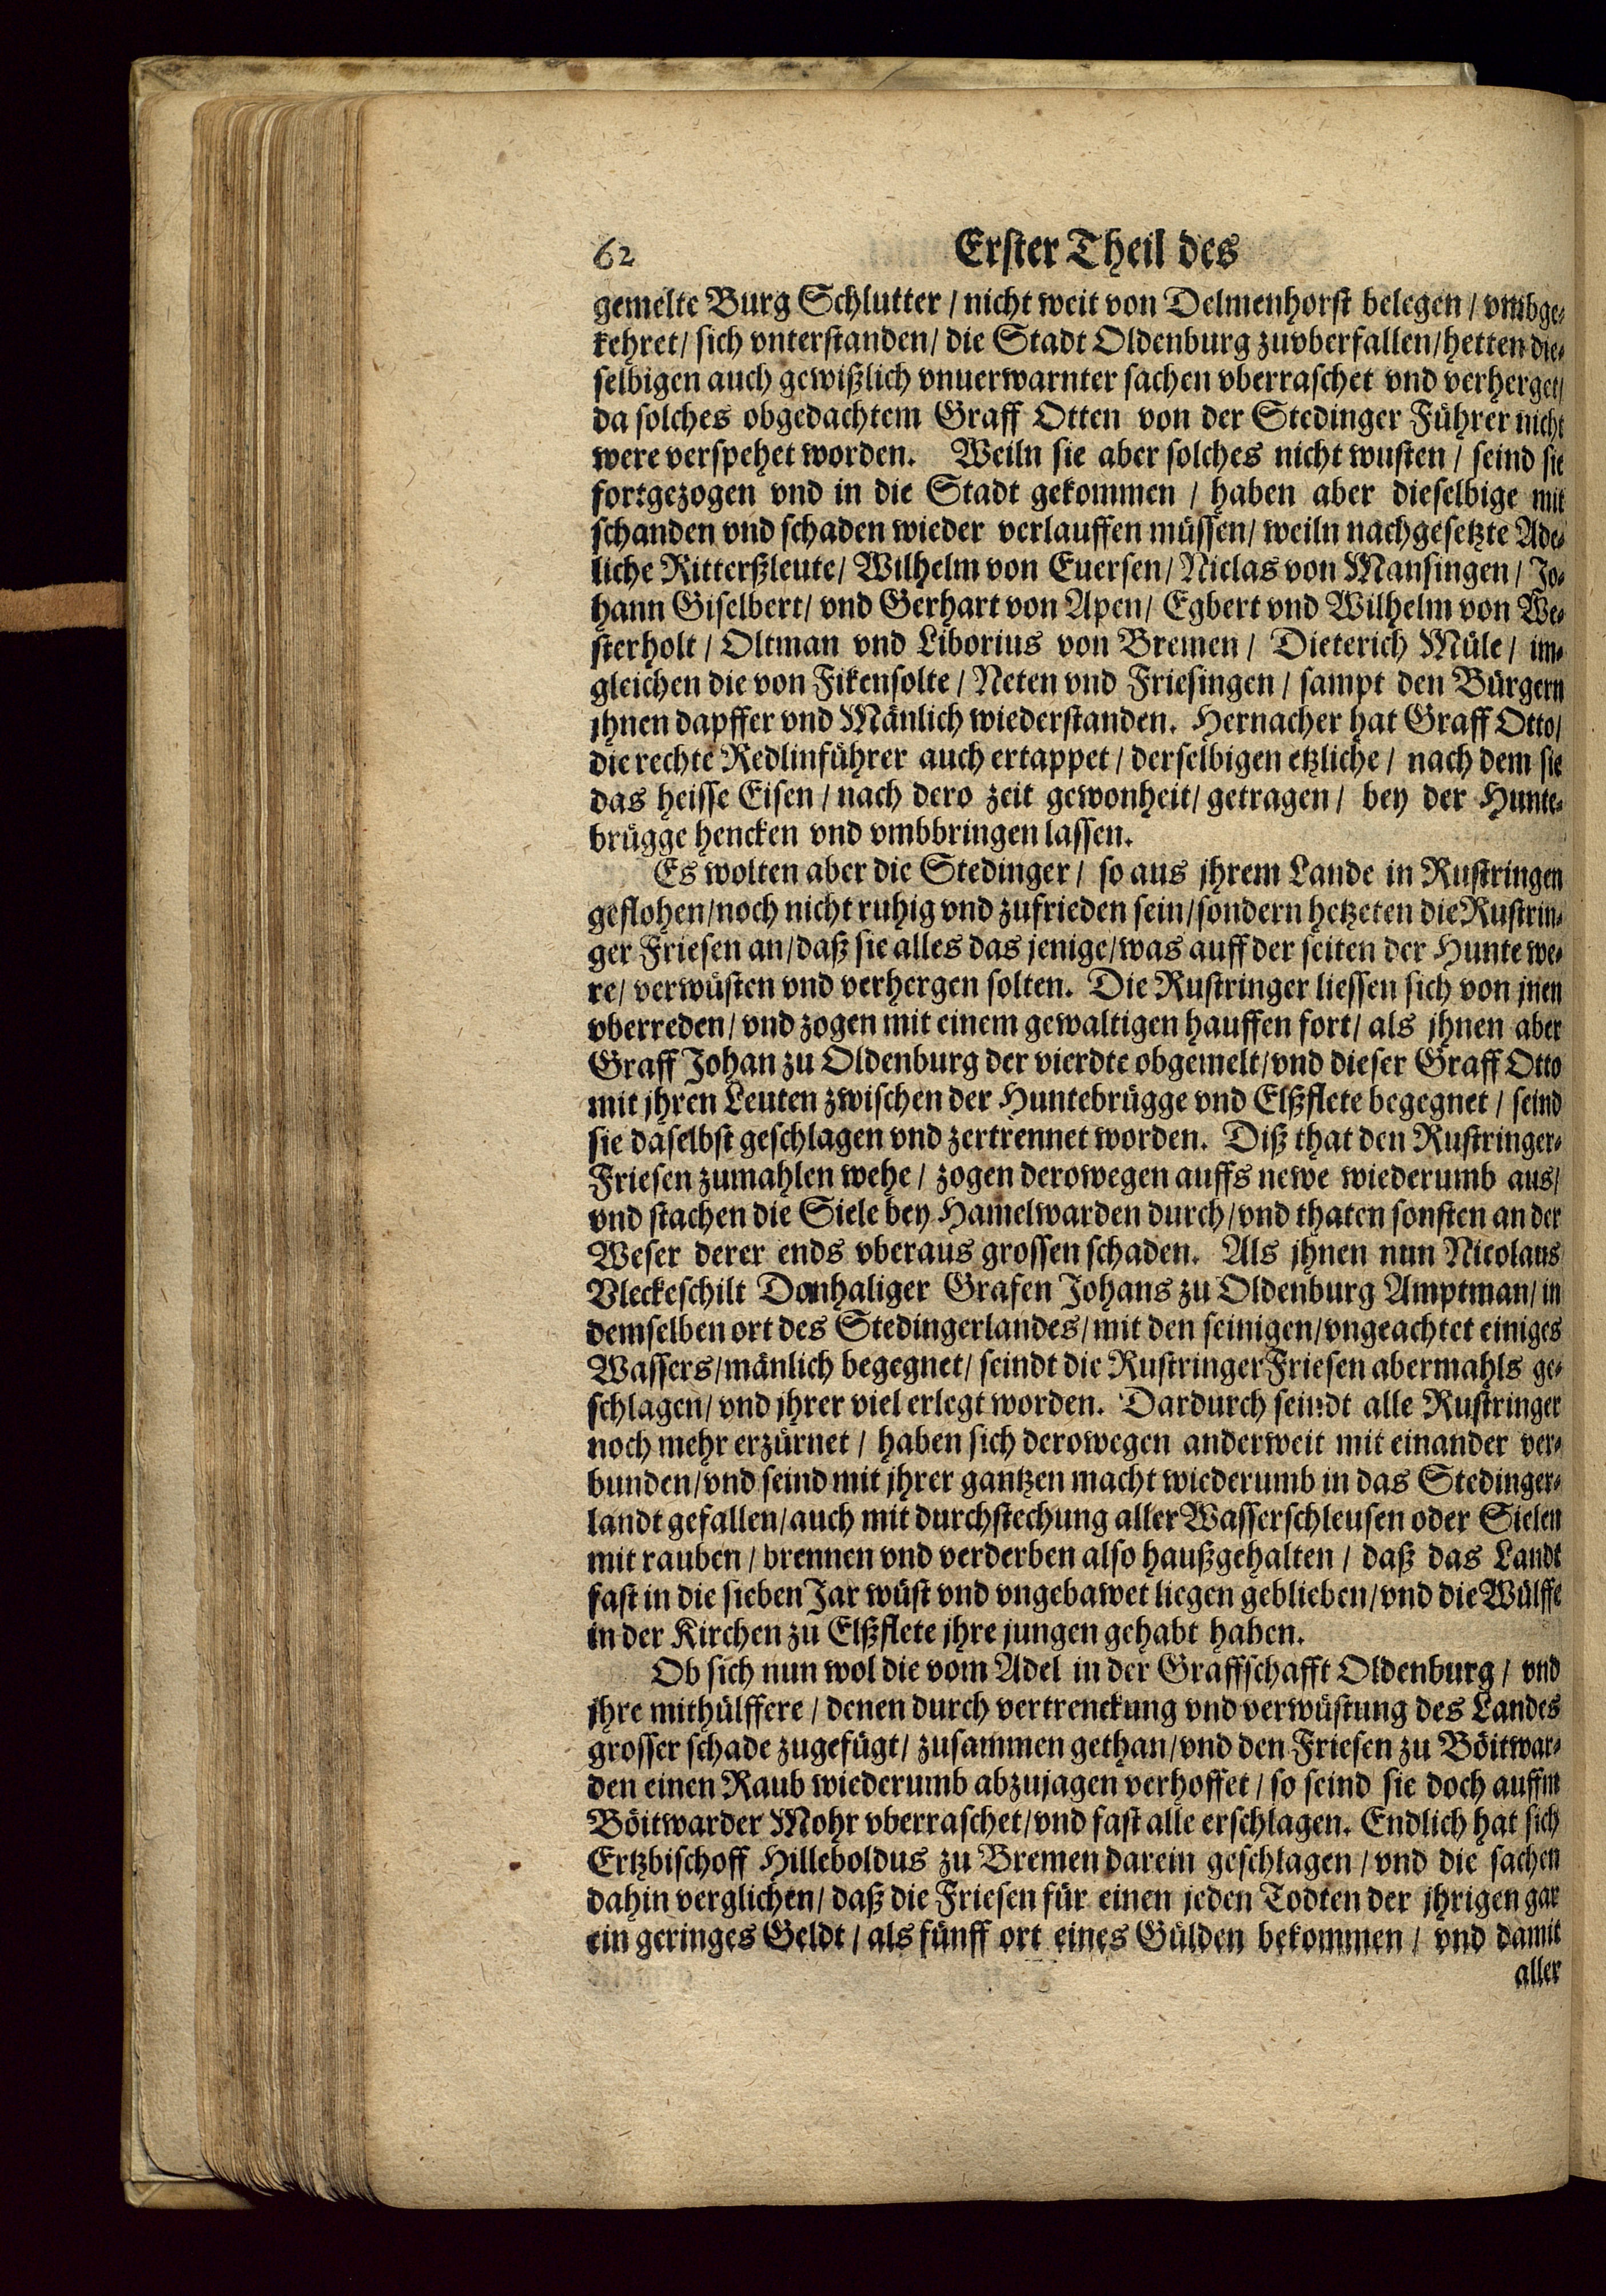 62 Erster Theil des
gemelte Burg Schlutter / nicht weit von Delmenhorst belegen / vmbge-
kehret / sich vnterstanden / die Stadt Oldenburg zuvberfallen / hetten die-
selbigen auch gewißlich vnuerwarnter sachen vberraschet vnd verherget /
da solches obgedachtem Graff Otten von der Stedinger Führer nicht
were verspehet worden. Weiln sie aber solches nicht wusten / seind sie
fortgezogen vnd in die Stadt gekommen / haben aber dieselbige mit
schanden vnd schaden wieder verlauffen müssen / weiln nachgesetzte Ade-
liche Ritterßleute / Wilhelm von Euersen / Niclas von Mansingen / Jo-
hann Giselbert / vnd Gerhart von Apen / Egbert vnd Wilhelm von We-
sterholt / Oltman vnd Liborius von Bremen / Dieterich Müle / im-
gleichen die von Fikensolte / Neten vnd Friesingen / sampt den Bürgern
jhnen dapffer vnd Mänlich wiederstanden. Hernacher hat Graff Otto /
die rechte Redlinführer auch ertappet / derselbigen etzliche / nach dem sie
das heisse Eisen / nach dero zeit gewonheit / getragen / bey der Hunte-
brügge hencken vnd vmbbringen lassen.
Es wolten aber die Stedinger / so aus jhrem Lande in Rustringen
geflohen / noch nicht ruhig vnd zufrieden sein / sondern hetzeten die Rustrin-
ger Friesen an / daß sie alles das jenige / was auff der seiten der Hunte we-
re / verwüsten vnd verhergen solten. Die Rustringer liessen sich von jnen
vberreden / vnd zogen mit einem gewaltigen hauffen fort / als jhnen aber
Graff Johan zu Oldenburg der vierdte obgemelt / vnd dieser Graff Otto
mit jhren Leuten zwischen der Huntebrügge vnd Elßflete begegnet / seind
sie daselbst geschlagen vnd zertrennet worden. Diß that den Rustringer-
Friesen zumahlen wehe / zogen derowegen auffs newe wiederumb aus /
vnd stachen die Siele bey Hamelwarden durch / vnd thaten sonsten an der
Weser derer ends vberaus grossen schaden. Als jhnen nun Nicolaus
Vleckeschilt Domhaliger Grafen Johans zu Oldenburg Amptman / in
demselben ort des Stedingerlandes / mit den seinigen / vngeachtet einiges
Wassers / mänlich begegnet / seindt die Rustringer Friesen abermahls ge-
schlagen / vnd jhrer viel erlegt worden. Dardurch seindt alle Rustringer
noch mehr erzürnet / haben sich derowegen anderweit mit einander ver-
bunden / vnd seind mit jhrer gantzen macht wiederumb in das Stedinger-
landt gefallen / auch mit durchstechung aller Wasserschleusen oder Sielen
mit rauben / brennen vnd verderben also haußgehalten / daß das Landt
fast in die sieben Jar wüst vnd vngebawet liegen geblieben / vnd die Wülffe
in der Kirchen zu Elßflete jhre jungen gehabt haben.
Ob sich nun wol die vom Adel in der Graffschafft Oldenburg / vnd
jhre mithülffere / denen durch vertrenckung vnd verwüstung des Landes
grosser schade zugefügt / zusammen gethan / vnd den Friesen zu Böitwar-
den einen Raub wiederumb abzujagen verhoffet / so seind sie doch auffm
Böitwarder Mohr vberraschet / vnd fast alle erschlagen. Endlich hat sich
Ertzbischoff Hilleboldus zu Bremen darein geschlagen / vnd die sachen
dahin verglichen / daß die Friesen für einen jeden Todten der jhrigen gar
ein geringes Geldt / als fünff ort eines Gülden bekommen / vnd damit
aller